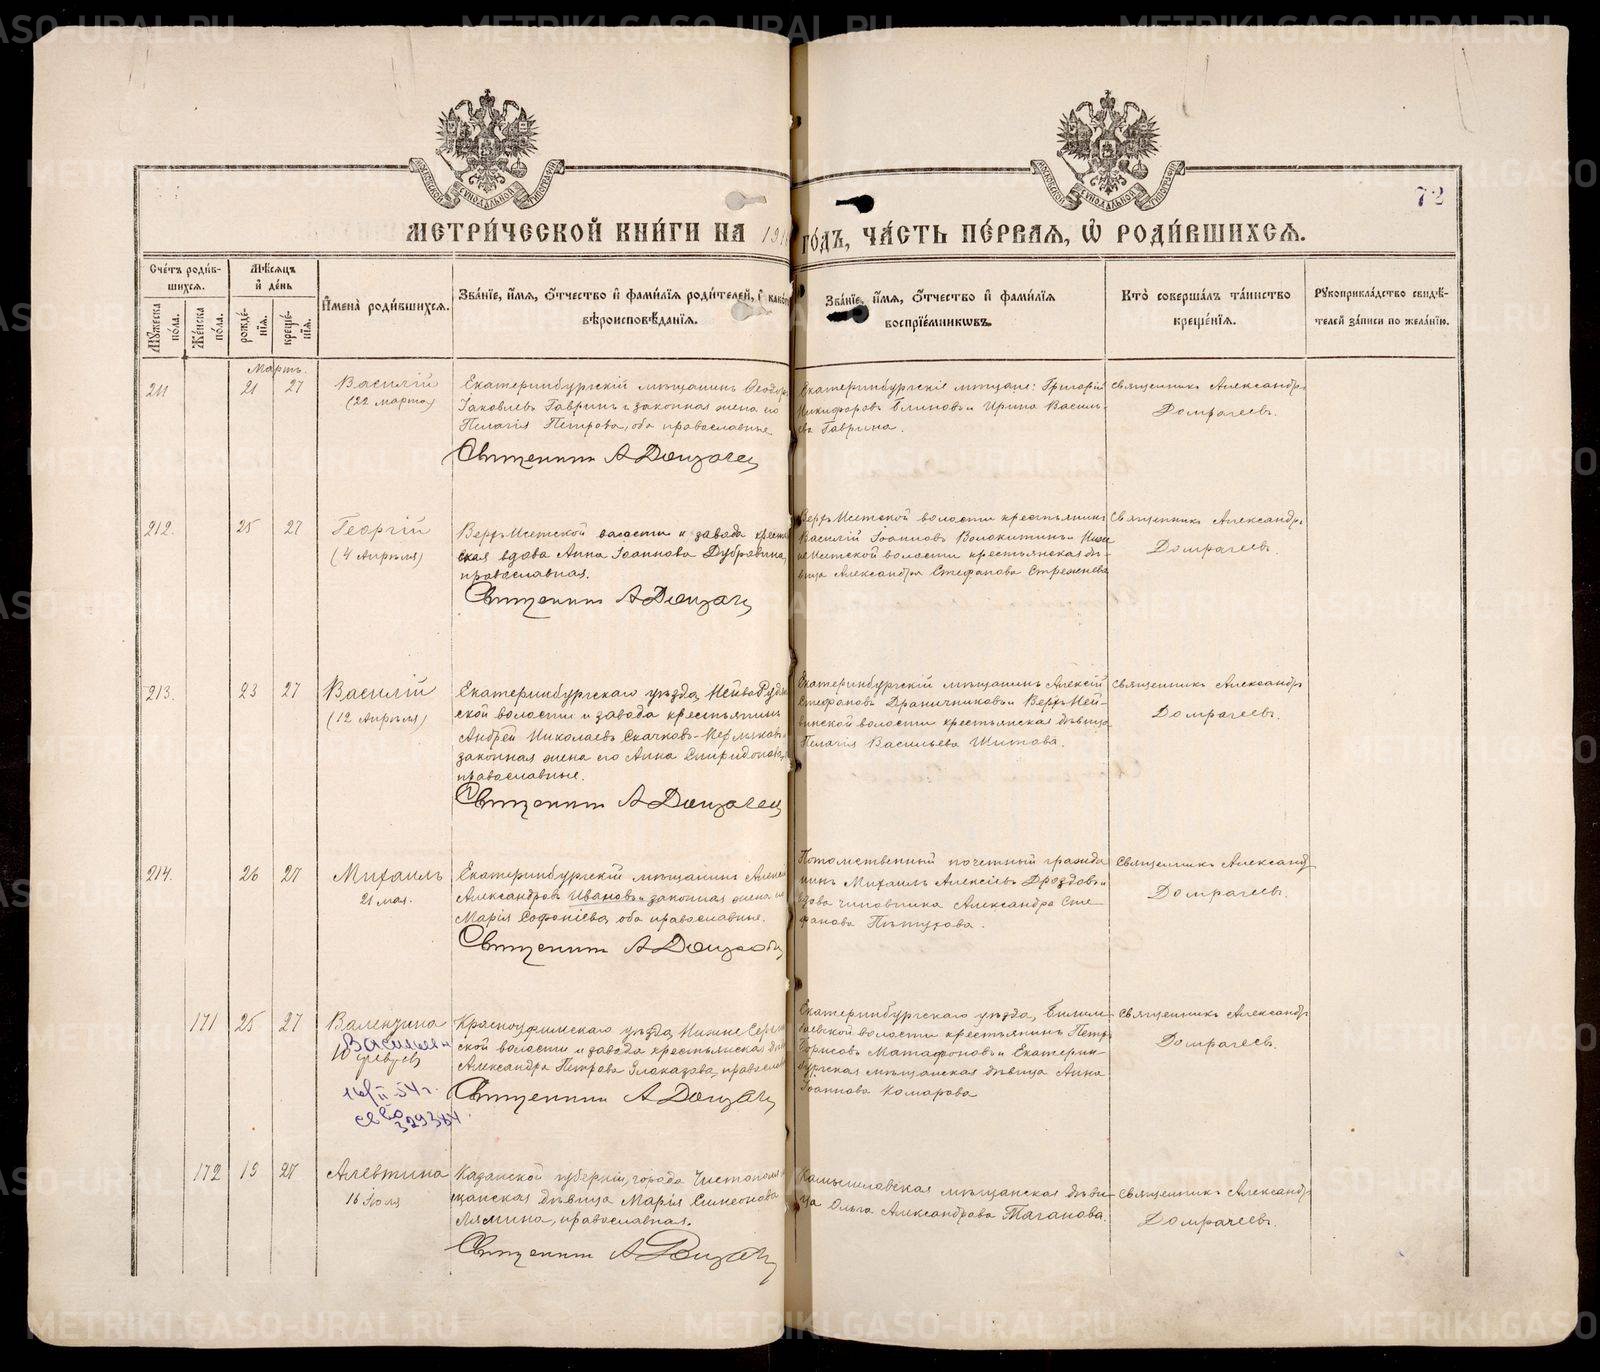 72
МЕТРИ́ЧЕСКОЙ КНИ́ГИ НА 191 ГО́ДЪ, ЧА́СТЬ ПЕ́РВАЯ, Ѡ РОДИ́ВШИХСЯ.
Сче́тъ роди́в-шихся.
Мѣ́сяцъ и҆ де́нь
И҆мена̀ роди́вшихся.
Зва́нїе, и҆́мя, ѻ҆́тчество и҆ фами́лїя роди́телей, и҆ како́г
вѣроисповѣ́данїя.
Зва́нїе, и҆́мя, ѻ҆́тчество и҆ фами́лїя
воспрїе́мниковъ.
Кто̀ соверша́лъ та́инство
креще́нїя.
Рукоприкла́дство свидѣ́-
телей за́писи по жела́нїю.
Му́жеска по́ла.
Же́нска по́ла.
рожде́-нїя.
креще́-нїя.
Мартъ.
211
21 27
Василій
(22 марта)
Екатеринбургскій мѣщанинъ Ѳеодоръ
Іаковлевъ Гавринъ и законная жена его
Пелагія Петрова, оба православные
Священникъ А Домрачев
Екатеринбургскіе мѣщане: Григорій
Никифоровъ Блиновъ и Ирина Василь-
ева Гаврина.
Священникъ Александръ
Домрачеевъ.
212.
25 27
Георгій
(4 Апрѣля)
Верхъ-Исетской волости и завода крестьян
ская вдова Анна Іоаннова Дубровина,
православная.
Священникъ А Домрачев
Верхъ-Исетской волости крестьянинъ
Василій Іоанновъ Волокитинъ и Ниж
Исетской волости крестьянская дѣ-
вица Александра Стефанова Стрежнева
Священникъ Александръ
Домрачеевъ.
213.
23 27
Василій
(12 Апрѣля)
Екатеринбургскаго уѣзда, Нейво-Рудян
ской волости и завода крестьянинъ
Андрей Николаевъ Скачковъ-Пермяковъ
законная жена его Анна Спиридонова,
православные.
Священникъ А Домрачеев
Екатеринбургскій мѣщанинъ Алексій
Стефановъ Драничниковъ и Верхъ-Ней-
винской волости крестьянская дѣвица
Пелагія Васильева Шитова.
Священникъ Александръ
Домрачеевъ.
214.
26 27
Михаилъ
21 мая.
Екатеринбургскій мѣщанинъ Алексій
Александровъ Ивановъ и законная жена его
Марія Софоніева, оба православные.
Священникъ А Домрачеев
Потомственный почетный гражда
нинъ Михаилъ Алексіевъ Дроздовъ и
вдова чиновника Александра Сте-
фанова Пѣтухова.
Священникъ Александръ
Домрачеевъ.
171
25 27
Валентина
10 февраля
16/II-54 г.
329364
Красноуфимскаго уѣзда, Нижне-Серги
ской волости и завода крестьянская дѣв
Александра Петрова Глоказова, православн
Священникъ А Домрачев
Екатеринбургскаго уѣзда, Билим-
баевской волости крестьянинъ Петръ
Борисовъ Матафоновъ и Екатерин-
бургская мѣщанская дѣвица Анна
Іоаннова Комарова
Священникъ Александръ
Домрачеевъ.
172
13 27
Алевтина
16 Іюля
Казанской губерніи, города Чистополя
щанская дѣвица Марія Симеонова
Лямина, православная.
Священникъ А Домрачев
Камышловская мѣщанская дѣви-
ца Ольга Александрова Таганова.
Священникъ Александръ
Домрачеевъ.
METRIKI.GASO-URAL.RU